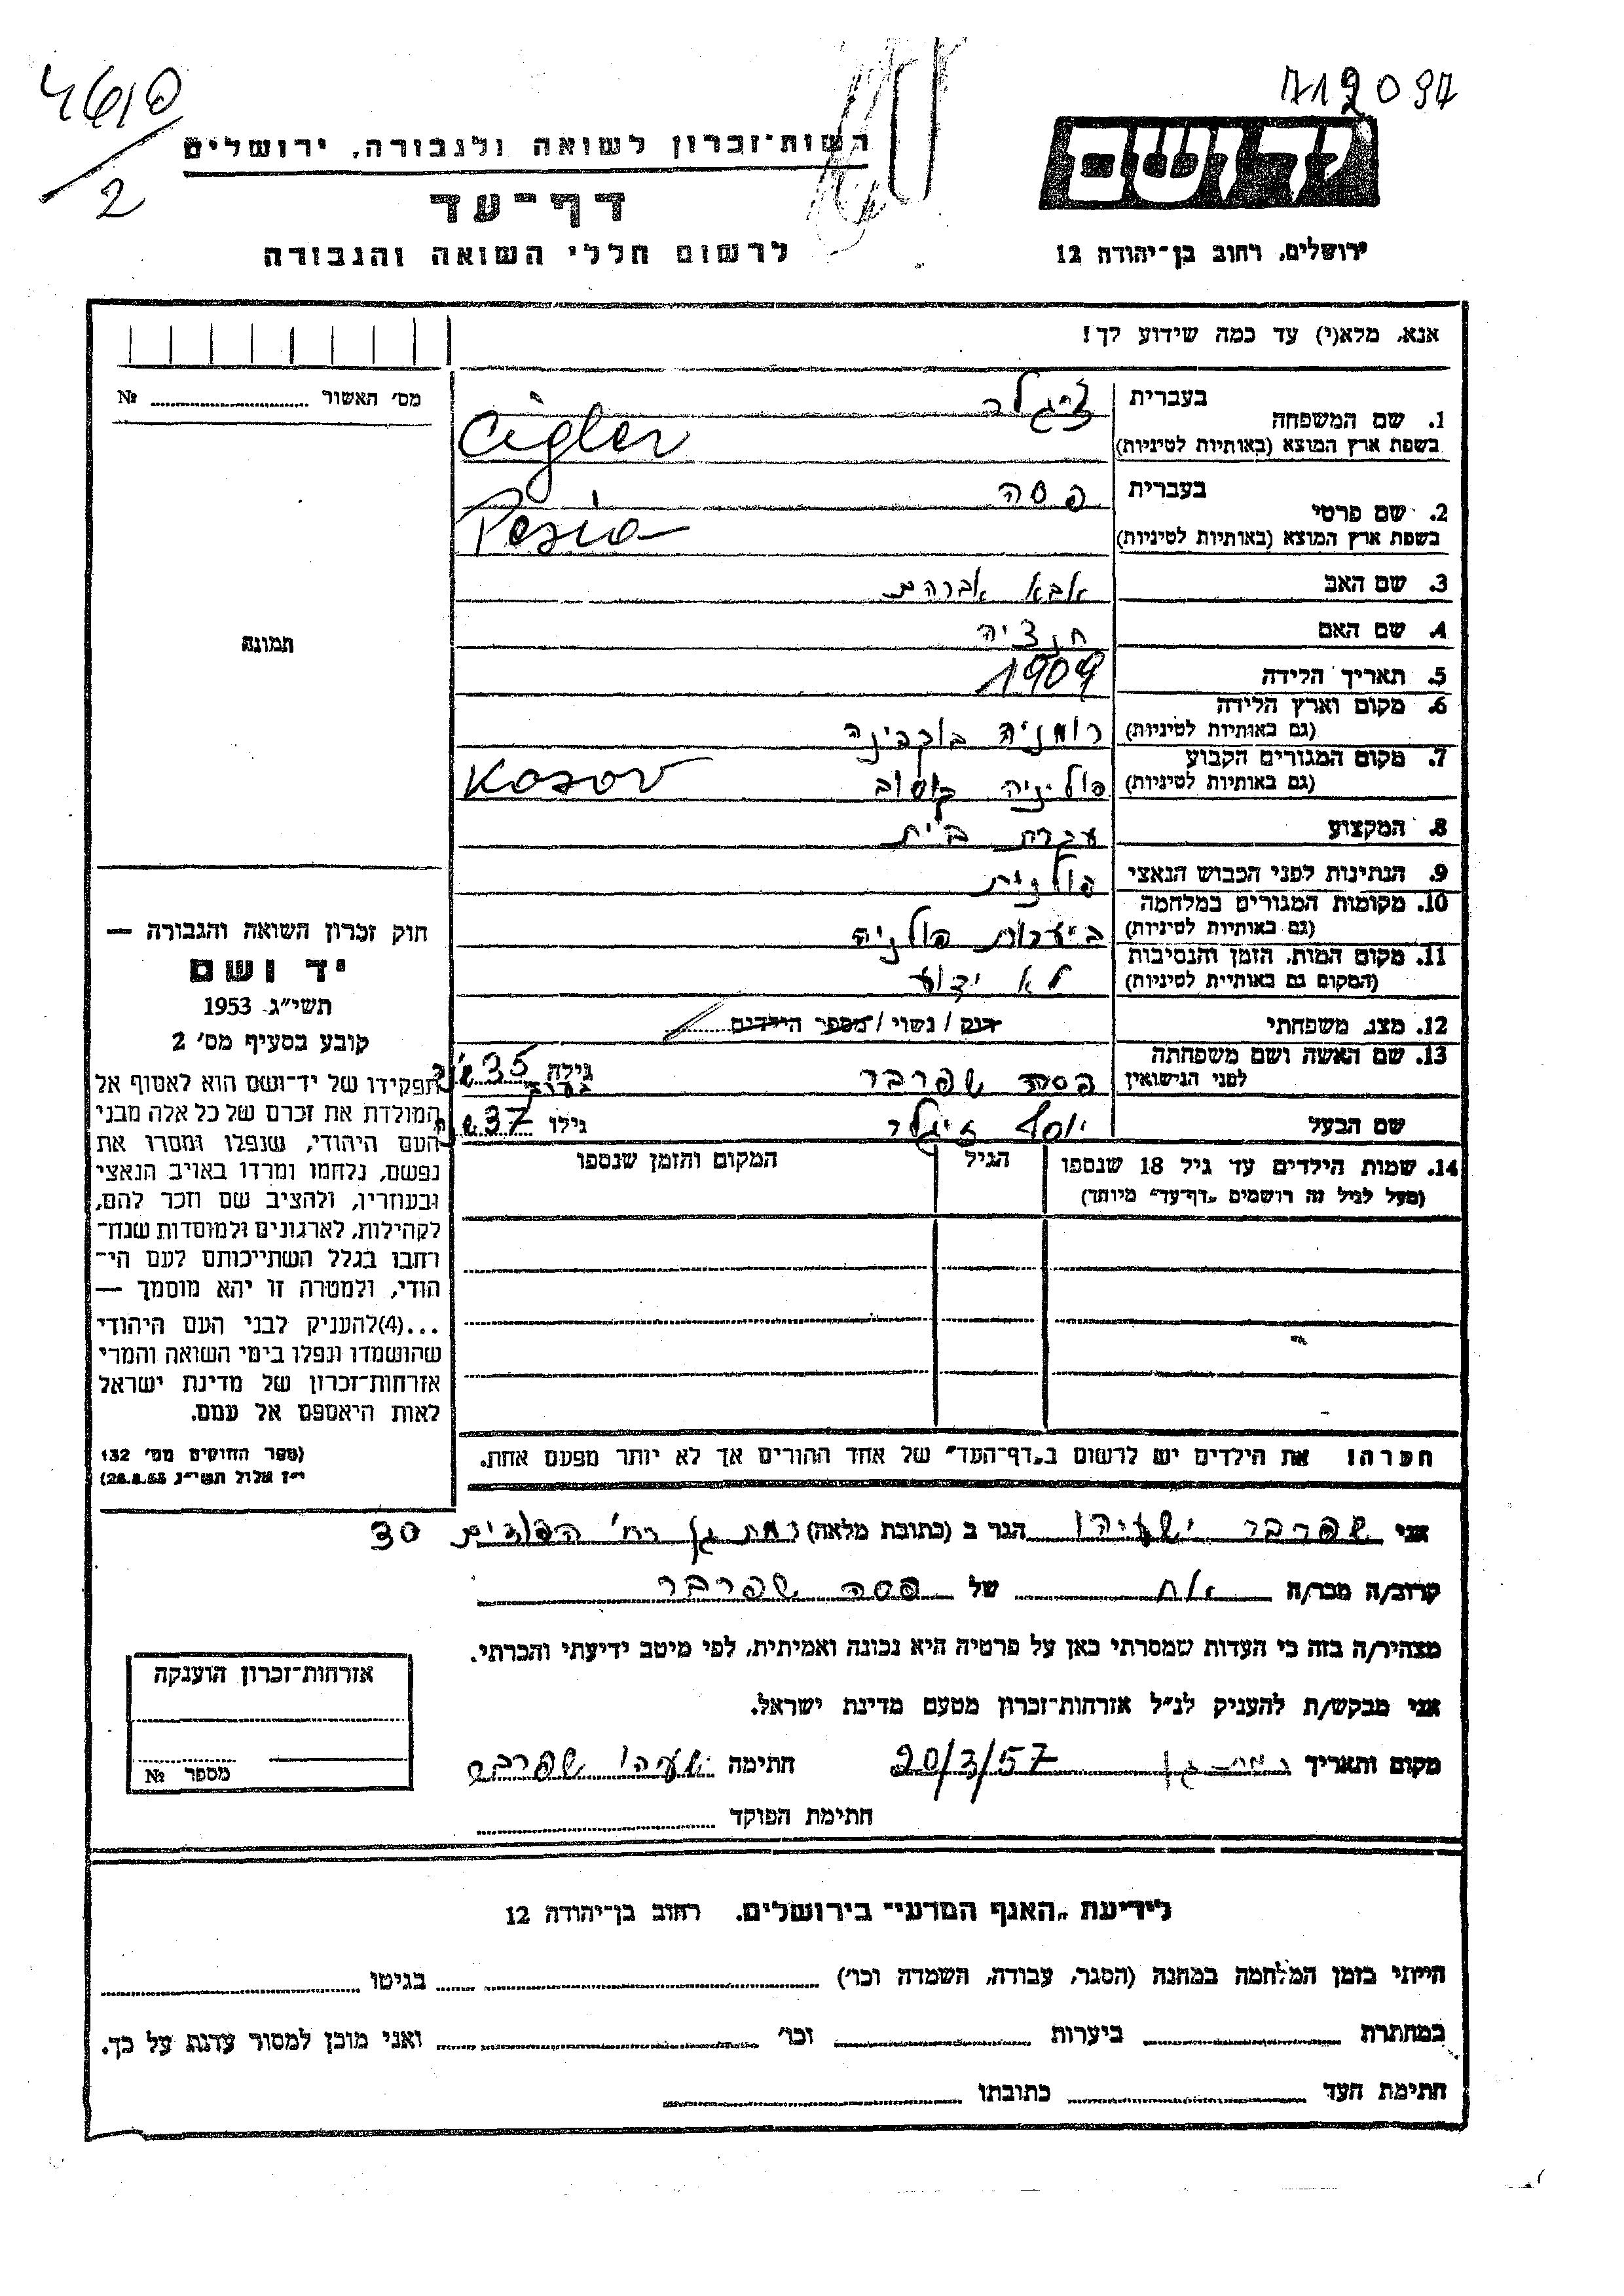 4610
2
712097
רשות־זכרון לשואה ולגבורה, ירושלים
דף־עד
לרשום חללי השואה והגבורה
יד ושם
ירושלים, רחוב בן־יהודה 12
אנא, מלא(י) עד כמה שידוע לך!
מס׳ האשור № 
1. שם המשפחה בעברית ציגלר
בשפת ארץ המוצא (באותיות לטיניות) Cigler
2. שם פרטי בעברית פסה
בשפת ארץ המוצא (באותיות לטיניות) Pesia
3. שם האב אבא אברהם
4. שם האם חנציה
5. תאריך הלידה 1909
6. מקום וארץ הלידה (גם באותיות לטיניות) רומניה בוקבינה
7. מקום המגורים הקבוע (גם באותיות לטיניות) פולניה קוסוב Kosov
8. המקצוע עקרת בית
9. הנתינות לפני הכבוש הנאצי פולנית
10. מקומות המגורים במלחמה (גם באותיות לטיניות) ביערות פולניה
11. מקום המות, הזמן והנסיבות (המקום גם באותיות לטיניות) לא ידוע
12. מצב משפחתי רוק / נשוי / מספר הילדים
13. שם האשה ושם משפחתה לפני הנישואין פסה שפרבר גילה 35
שם הבעל יוסף ציגלר גילו 37
14. שמות הילדים עד גיל 18 שנספו הגיל המקום והזמן שנספו
(מעל לגיל זה רושמים „דף־עד״ מיוחד)
תמונה
חוק זכרון השואה והגבורה —
יד ושם
תשי״ג 1953
קובע בסעיף מס׳ 2
תפקידו של יד־ושם הוא לאסוף אל
המולדת את זכרם של כל אלה מבני
העם היהודי, שנפלו ומסרו את
נפשם, נלחמו ומרדו באויב הנאצי
ובעוזריו, ולהציב שם וזכר להם,
לקהילות, לארגונים ולמוסדות שנח־
רבו בגלל השתייכותם לעם הי־
הודי, ולמטרה זו יהא מוסמך —
...(4)להעניק לבני העם היהודי
שהושמדו ונפלו בימי השואה והמרי
אזרחות־זכרון של מדינת ישראל
לאות היאספם אל עמם.
(ספר החוקים מס׳ 132
י״ז אלול תשי״ג 28.8.53)
הערה! את הילדים יש לרשום ב„דף־העד״ של אחד ההורים אך לא יותר מפעם אחת.
אני שפרבר ישעיהו הגר ב (כתובת מלאה) רמת גן רח׳ הפודים 30
קרוב/ה מכר/ה אח של פסה שפרבר
מצהיר/ה בזה כי העדות שמסרתי כאן על פרטיה היא נכונה ואמיתית, לפי מיטב ידיעתי והכרתי.
אני מבקש/ת להעניק לנ״ל אזרחות־זכרון מטעם מדינת ישראל.
מקום ותאריך רמת גן 20/3/57 חתימה ישעיהו שפרבר
חתימת הפוקד
אזרחות־זכרון הוענקה
מספר №
לידיעת „האגף המדעי״ בירושלים, רחוב בן־יהודה 12
הייתי בזמן המלחמה במחנה (הסגר, עבודה, השמדה וכו׳) בגיטו
במחתרת ביערות וכו׳ ואני מוכן למסור עדות על כך.
חתימת העד כתובתו